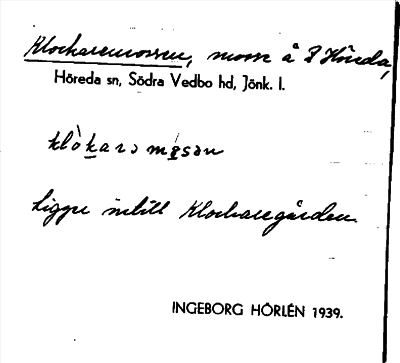 Klockaremossen, mosse å S Höreda,
Höreda sn, Södra Vedbo hd, Jönk. l.
klòkarə mosən
Ligger intill Klockaregården.
INGEBORG HÖRLÉN 1939.